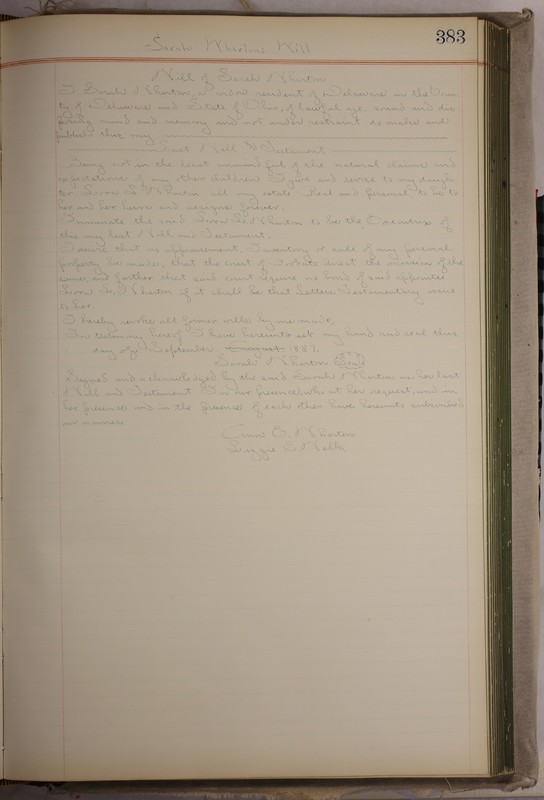 383
Sarah Wharton's Will
Will of Sarah Wharton
I Sarah Wharton, a widow resident of Delaware in the Coun-
ty of Delaware and State of Ohio, of lawful age, sound and dis-
posing mind and memory and not under restraint do make and
publish this my
Last Will & Testament
Being not in the least unmindful of the natural claims and
expectations of my other children I give and devise to my daugh-
ter Wharton all my estate Real and personal to be to
her and her heirs and assigns forever.
I nominate the said Wharton to be the Executrix of
this my last Will and Testament.
I desire that no appraisement, Inventory or sale of any personal
property be made, that the court of Probate direct the omission of the
same, and further that said court require no bond of said appointee
Wharton if it shall be that Letters Testamentary issue
to her.
I hereby revoke all former wills by me made,
In testimony hereof I have hereunto set my hand and seal this
day of September August 1887.
Sarah Wharton Seal
Signed and acknowledged by the said Sarah Wharton as her last
Will and Testament In our presence, who at her request, and in
her presence and in the presence of each other have hereunto subscribed
our names
Wharton
Lizzie